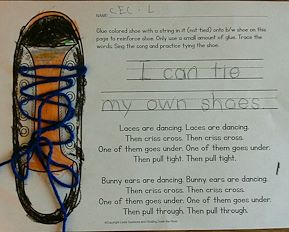 NAME: CECIL
Glue colored shoe with a string in it (not tied) onto b/w shoe on this
page to reinforce shoe. Only use a small amount of glue. Trace the
words. Sing the song and practice tying the shoe.
I can tie
my own shoes
Laces are dancing. Laces are dancing.
Then criss cross. Then criss cross.
One of them goes under. One of them goes under.
Then pull tight. Then pull tight.
Bunny ears are dancing. Bunny ears are dancing.
Then criss cross. Then criss cross.
One of them goes under. One of them goes under.
Then pull through. Then pull through.